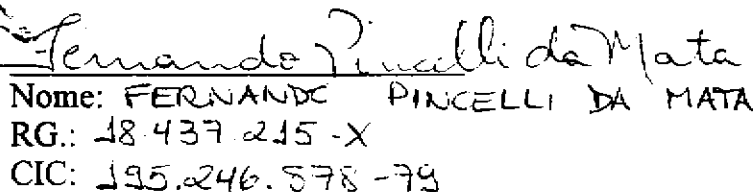 Fernando Pincelli da Mata
Nome: FERNANDO PINCELLI DA MATA
RG.: 18.437.215-X
CIC: 195.246.878-79